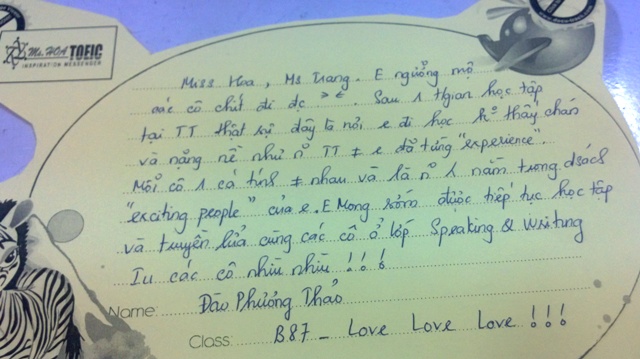 Ms. HOA TOEIC
INSPIRATION MESSENGER
Miss Hoa, Ms Trang. E ngưỡng mộ
các cô chết đi dc >.<. Sau 1 tgian học tập
tại TT thật sự đây là nơi e đi học k° thấy chán
và nặng nề như n~ TT ≠ e đã từng "experience".
Mỗi cô 1 cá tính ≠ nhau và là n~ ng nằm trong dsách
"exciting people" của e. E Mong sớm được tiếp tục học tập
và truyền lửa cùng các cô ở lớp Speaking & Writing
Iu các cô nhìu nhìu !!!
Name: Đào Phương Thảo
Class: B87 - Love Love Love !!!